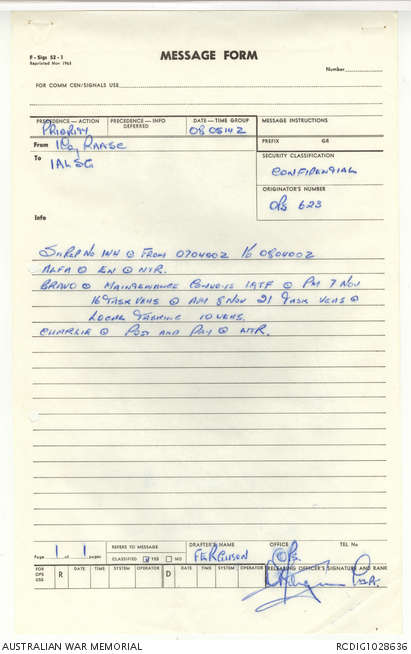 F-Sigs 52-1
Reprinted Nov 1965
MESSAGE FORM
Number
FOR COMM CEN/SIGNALS USE
PRECEDENCE — ACTION
PRIORITY
PRECEDENCE — INFO
DEFERRED
DATE — TIME GROUP
080514Z
MESSAGE INSTRUCTIONS
PREFIX GR
From 1 Coy RAASC
To 1ALSG
SECURITY CLASSIFICATION
CONFIDENTIAL
ORIGINATOR'S NUMBER
OPS 623
Info
SITREP NO ⊙ FROM 070400Z TO 080400Z
ALFA ⊙ EN ⊙ NTR.
BRAVO ⊙ MAINTENANCE CONVOYS 1ATF ⊙ PM 7 NOV
16 TASK VEHS ⊙ AM 8 NOV 21 TASK VEHS ⊙
LOCAL TASKING 10 VEHS.
CHARLIE ⊙ POST AND PAY ⊙ NTR.
Page 1 of 1 pages
REFERS TO MESSAGE
CLASSIFIED YES NO
DRAFTER'S NAME
FERGUSON
OFFICE
OPS
TEL No
FOR OPS USE
R DATE TIME SYSTEM OPERATOR D DATE TIME SYSTEM OPERATOR
RELEASING OFFICER'S SIGNATURE AND RANK
AUSTRALIAN WAR MEMORIAL
RCDIG1028636